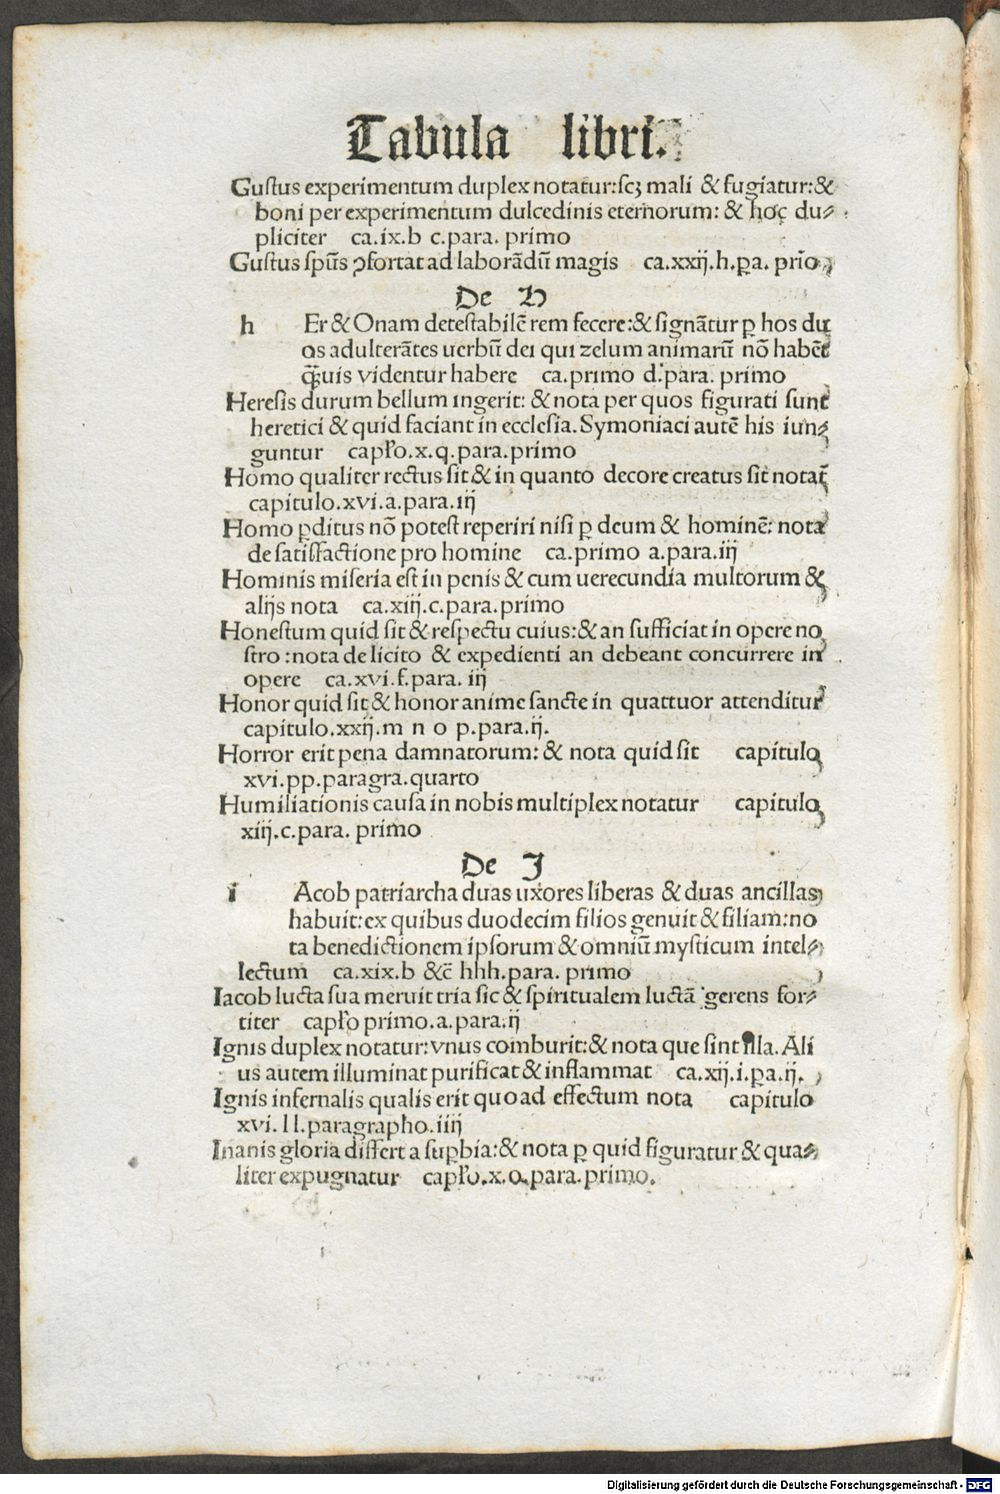 Tabula libri.
Gustus experimentum duplex notatur:scꝫ mali & fugiatur:&
boni per experimentum dulcedinis eternorum: & hoc du⸗
pliciter ca.ix.b c.para. primo
Gustus spūs ꝯfortat ad laborādū magis ca.xxij.h.ꝑa. prīo
De H
h Er & Onam detestabilē rem fecere:& signātur ꝑ hos du
os adulterātes uerbū dei qui zelum animarū nō habēt
q̄ꝫuis videntur habere ca.primo d.para. primo
Heresis durum bellum ingerit: & nota per quos figurati sunt
heretici & quid faciant in ecclesia. Symoniaci autē his iun⸗
guntur capłо.x.q.para.primo
Homo qualiter rectus sit & in quanto decore creatus sit notat̄
capitulo.xvi.a.para.iij
Homo ꝑditus nō potest reperiri nisi ꝑ deum & hominē: nota
de satisfactione pro homine ca.primo a.para.iij
Hominis miseria est in penis & cum uerecundia multorum &
alijs nota ca.xiij.c.para.primo
Honestum quid sit & respectu cuius:& an sufficiat in opere no
stro:nota de licito & expedienti an debeant concurrere in
opere ca.xvi.f.para. iij
Honor quid sit & honor anime sancte in quattuor attenditur
capitulo.xxij.m n o p.para.ij.
Horror erit pena damnatorum: & nota quid sit capitulo
xvi.pp.paragra.quarto
Humiliationis causa in nobis multiplex notatur capitulo
xiij.c.para. primo
De I
i Acob patriarcha duas uxores liberas & duas ancillas
habuit:ex quibus duodecim filios genuit & filiam:no
ta benedictionem ipsorum & omniū mysticum intel⸗
lectum ca.xix.b &c̄ hhh.para. primo
Iacob lucta sua meruit tria sic & spiritualem luctā gerens for⸗
titer capło primo.a.para.ij
Ignis duplex notatur:vnus comburit:& nota que sint illa. Ali
us autem illuminat purificat & inflammat ca.xij.i.ꝑa.ij.
Ignis infernalis qualis erit quoad effectum nota capitulo
xvi.ll.paragrapho.iiij
Inanis gloria differt a suꝑbia:& nota ꝑ quid figuratur & qua⸗
liter expugnatur capło.x.o.para.primo.
Digitalisierung gefördert durch die Deutsche Forschungsgemeinschaft - DFG